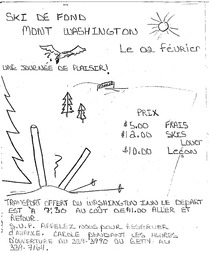 SKI DE FOND
MONT WASHINGTON
LE 02 FÉVRIER
UNE JOURNÉE DE PLAISIR!
PRIX
$5.00 FRAIS
$12.00 SKIS
LOUER
$10.00 LEÇON
TRANSPORT OFFERT DU WASHINGTON INN. LE DÉPART
EST À 7:30 AU COÛT DE $1.00 ALLER ET
RETOUR.
S.V.P. APPELEZ NOUS POUR
D'AVANCE. CAROLE PENDANT LES HEURES
D'OUVERTURE AU OU BETTY AU